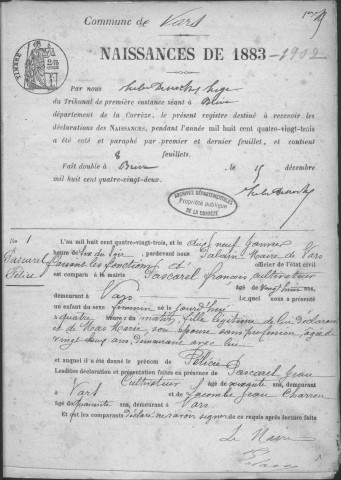 Commune de Vars
NAISSANCES DE 1883 - 1902
TIMBRE
Par nous
du Tribunal de première instance séant à Brive
département de la Corrèze, le présent registre destiné à recevoir les
déclarations des NAISSANCES, pendant l'année mil huit cent quatre-vingt-trois
a été coté et paraphé par premier et dernier feuillet, et contient
8 feuillets.
Fait double à Brive, le 15 décembre
mil huit cent quatre-vingt-deux.
ARCHIVES DÉPARTEMENTALES
Propriété publique
DE LA CORRÈZE
No 1
L'an mil huit cent quatre-vingt-trois, le neuf Janvier
heure de du soir, pardevant nous Maire de Vars
Pascarel
faisant les fonctions d'officier de l'état civil
est comparu à la mairie Pascarel françois cultivateur
âgé de vingt huit ans,
demeurant à Vars, lequel nous a présenté
un enfant du sexe féminin né le jourd'hui
à quatre heures du matin, fille légitime de lui déclarant
et de Mas Marie, son épouse sans profession, âgée
vingt ans, demeurant avec lui
et auquel il a été donné le prénom de
Lesdites déclaration et présentation faites en présence de Pascarel Jean
Cultivateur âgé de ans, demeurant
à Vars et de Lacombe Jean Charron
âgé de ans, demeurant à Vars
Et ont les comparants déclaré ne savoir signer de ce requis après lecture faite
Le Maire